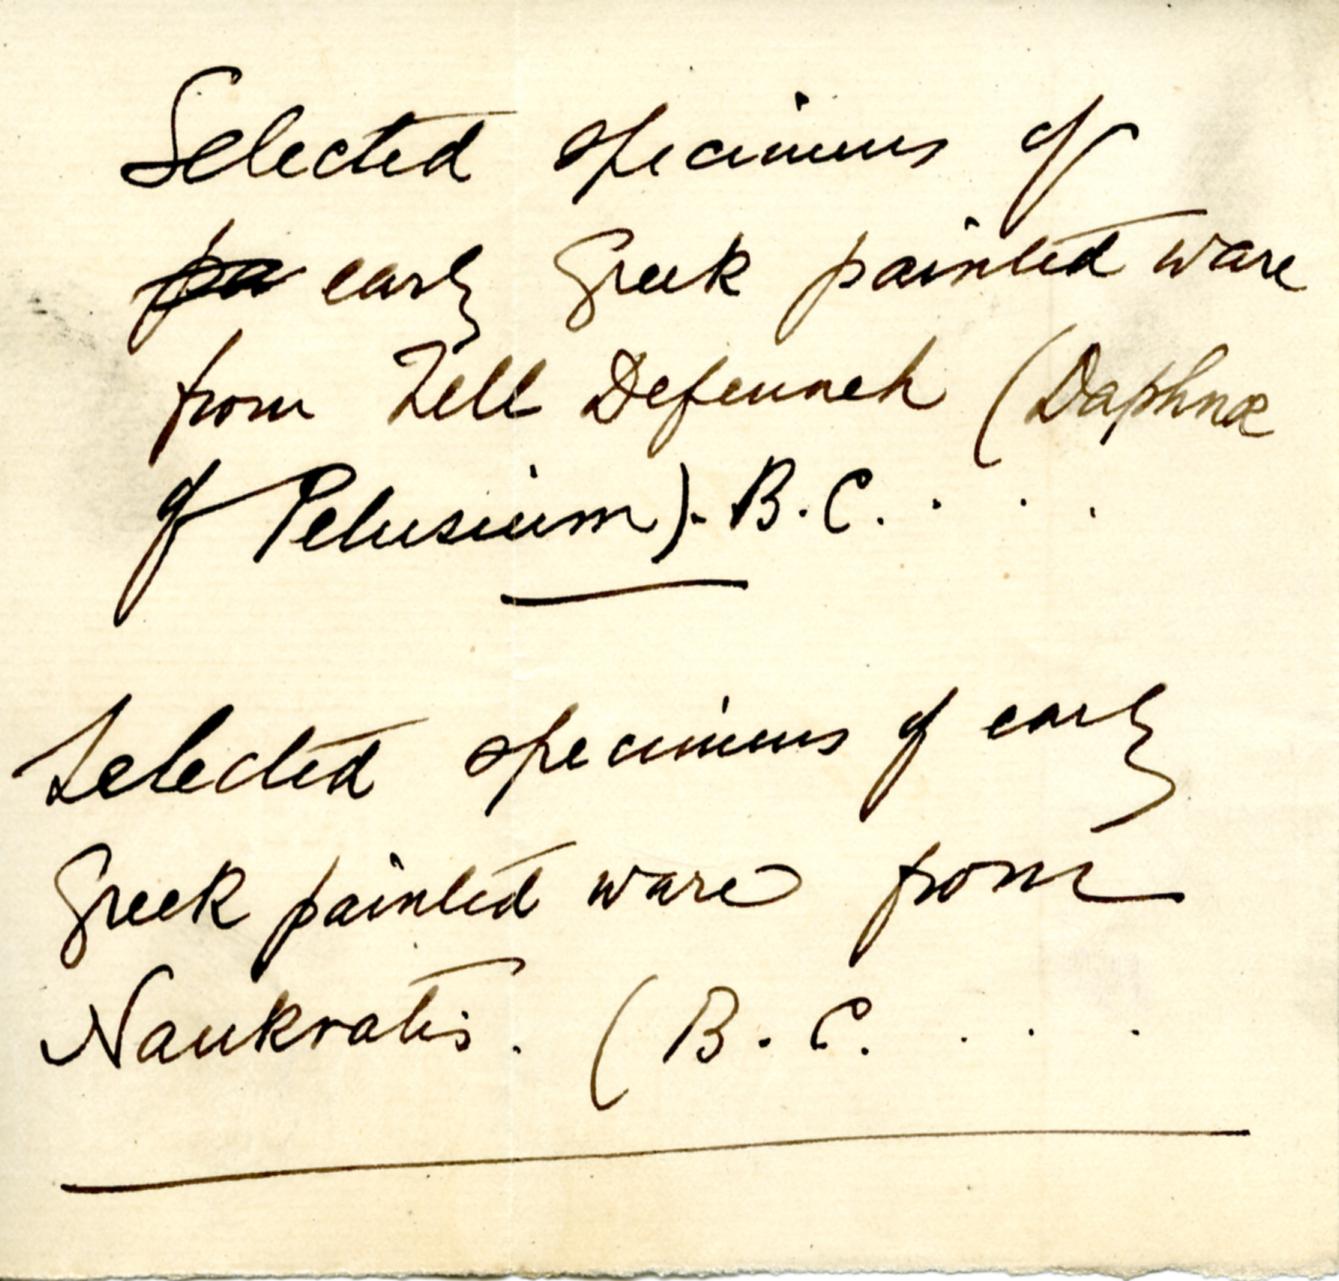 Selected specimens of
pa early Greek painted ware
from Tell Defenneh (Daphnæ
of Pelusium). B.C. . . .
Selected specimens of early
Greek painted ware from
Naukratis. (B.C. . . .